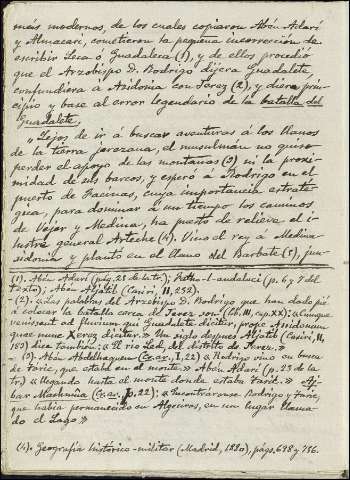 más modernos, de los cuales copiaron Abén Adarí
y Almacari, cometieron la pequeña incorrección de
escribir Leca ó Guadaleca (1), y de ellos procedió
que el Arzobispo D. Rodrigo dijera Guadalete
confundiera á Asidonia con Jerez (2), y diera prin-
cipio y base al error legendario de la batalla del
Guadalete.
"Lejos de ir á buscar aventuras á los llanos
de la tierra jerezana, el musulmán no quiso
perder el apoyo de las montañas (3) ni la proxi-
midad de sus barcos, y esperó á Rodrigo en el
puerto de Facinas, cuya importancia estraté-
gica, para dominar á un tiempo los caminos
de Vejer y Medina, ha puesto de relieve el i-
lustre general Arteche (4). Vino el rey á Medina-
sidonia y plantó en el llano del Barbate (5), jun-
(1). Abén Adarí (pág. 23 de la tr.); (p. 6 y 7 del
texto); Abén Aljatib (Casiri, II, 252).
(2). «Las palabras del Arzobispo D. Rodrigo que han dado pié
á colocar la batalla cerca de Jerez son (Lib. III, cap. XX): «Cumque
venissent ad fluvium qui Guadalete dicitur, prope Assidonam
quae nunc Xerez dicitur.» Un siglo después Aljatib (Casiri, II,
183) dice también: «El río Led, del distrito de Jerez.»
(3). Abén Abdelhaquen (I, 22) «Rodrigo vino en busca
de Taric, que estaba en el monte.» Abén Adarí (p. 23 de la
tr.) «llegando hasta el monte donde estaba Taric.» Aj-
bar Machmúa (p. 22); «Encontráronse Rodrigo y Taric,
que había permanecido en Algeciras, en un lugar llama-
do el Lago.»
(4). Geografía histórico-militar (Madrid, 1880), págs. 698 y 756.